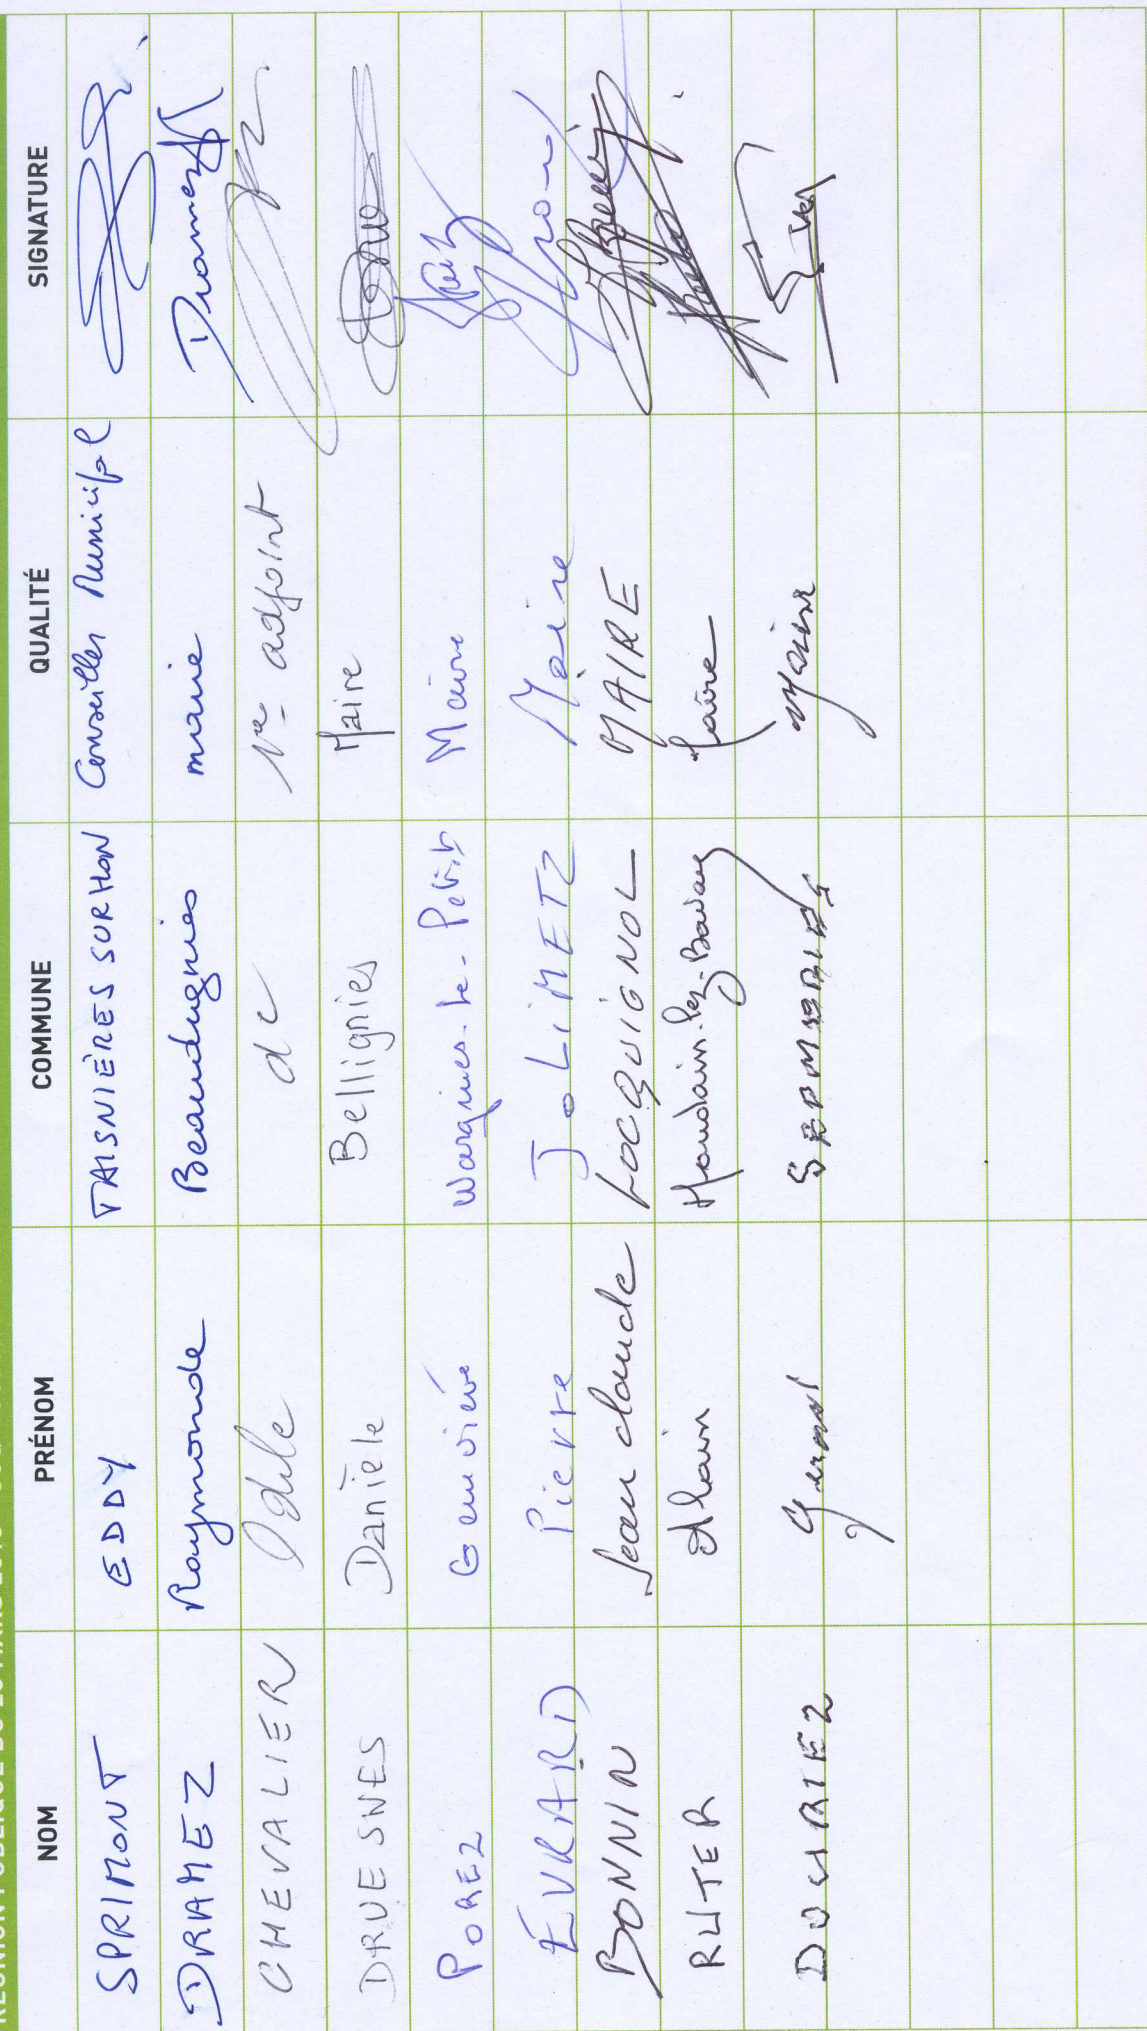 NOM PRÉNOM COMMUNE QUALITÉ SIGNATURE
SPRIMONT EDDY TAISNIÈRES SUR HON Conseiller Municipal
DRAMEZ Raymonde Beaudignies maire Dramez
CHEVALIER Odile dc 1re adjoint
DRUESNES Danièle Bellignies Maire
POREZ Geneviève Wargnies-Le-Petit Maire
EVRARD Pierre JOLIMETZ Maire
BONNIN Jean claude LOCQUIGNOL MAIRE
RUTER Alain Houdain-lez-Bavay Maire
Gerard Maire